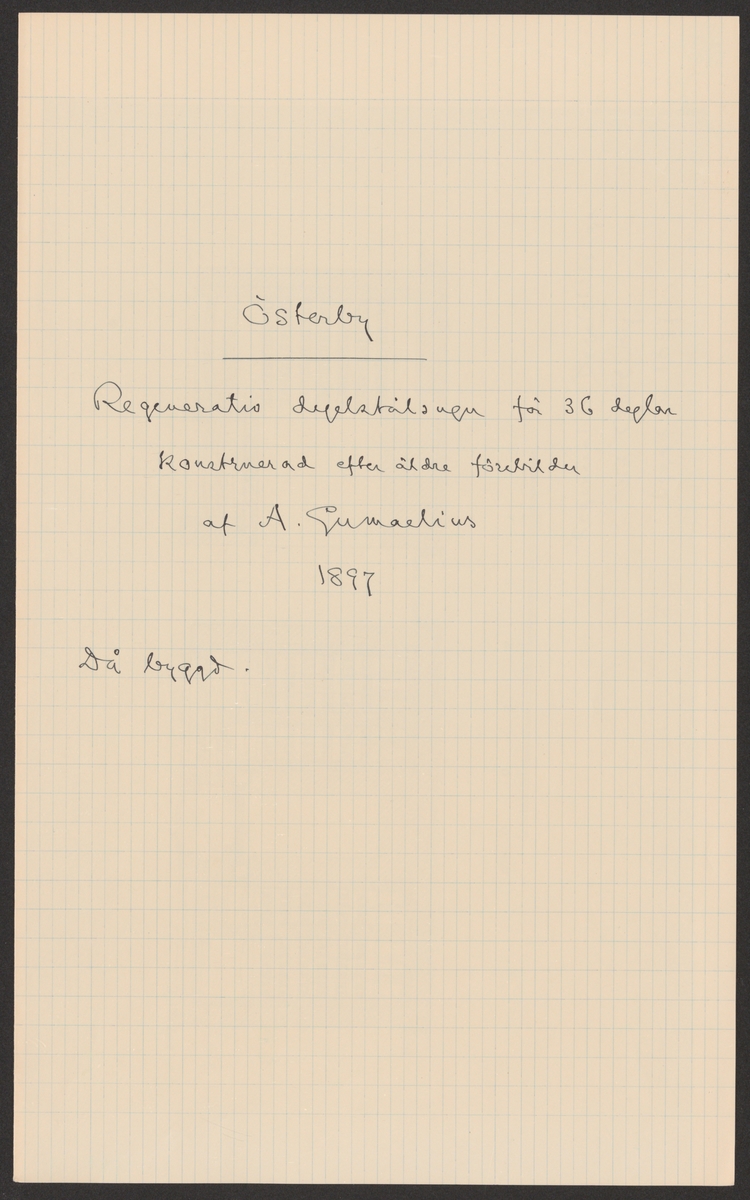 Österby
Regenerativ degelstålsugn för 36 deglar
konstruerad efter äldre förebilder
af A. Gumaelius
1897
Då byggd.